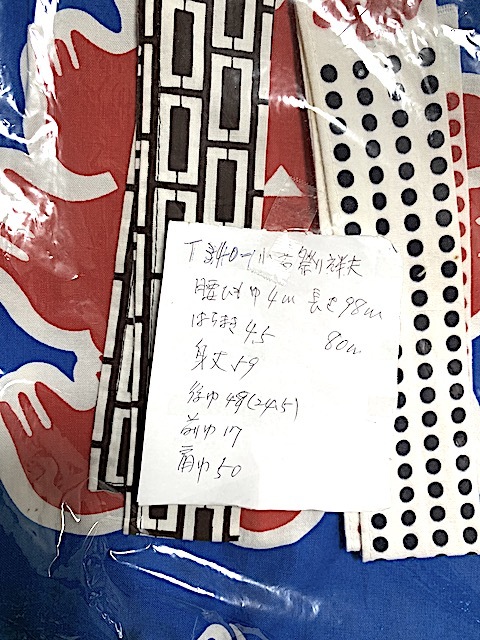 腰ひも巾4㎝ 長さ98㎝
はちまき4.5 80㎝
身丈59
後巾49(24.5)
前巾17
肩巾50